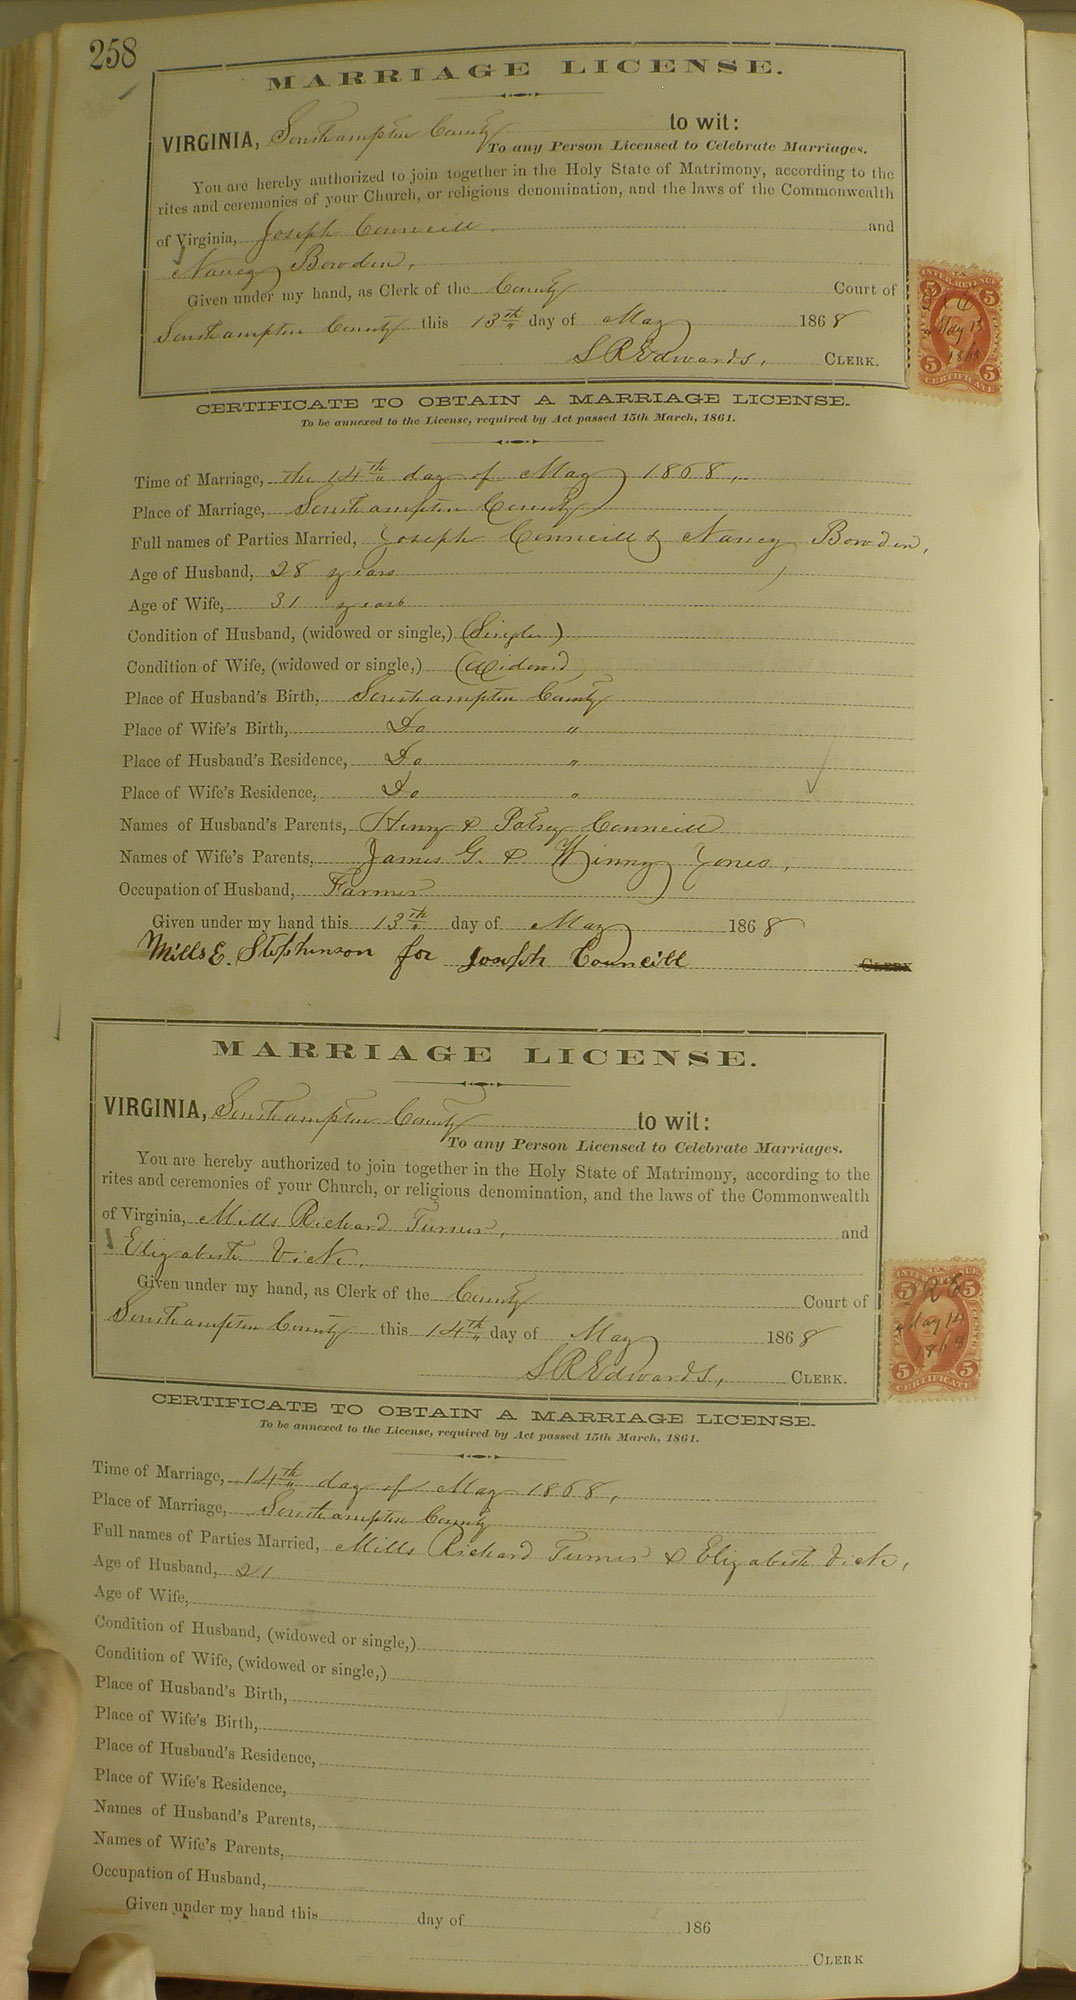 258
MARRIAGE LICENSE.
VIRGINIA, Southampton County to wit:
To any Person Licensed to Celebrate Marriages.
You are hereby authorized to join together in the Holy State of Matrimony, according to the
rites and ceremonies of your Church, or religious denomination, and the laws of the Commonwealth
of Virginia, Joseph Councill, and
Nancy Bowden,
Given under my hand, as Clerk of the County Court of
Southampton County this 13th day of May 1868
L R Edwards, CLERK.
5 5
May 13
1868
5 5
CERTIFICATE
CERTIFICATE TO OBTAIN A MARRIAGE LICENSE.
To be annexed to the License, required by Act passed 15th March, 1861.
Time of Marriage, the 14th day of May 1868,
Place of Marriage, Southampton County
Full names of Parties Married, Joseph Councill & Nancy Bowden,
Age of Husband, 28 years
Age of Wife, 31 years
Condition of Husband, (widowed or single,) (Single)
Condition of Wife, (widowed or single,) (Widowed)
Place of Husband's Birth, Southampton County
Place of Wife's Birth, Do "
Place of Husband's Residence, Do "
Place of Wife's Residence, Do "
Names of Husband's Parents, Henry & Patsey Councill
Names of Wife's Parents, James G. & Winny Jones,
Occupation of Husband, Farmer
Given under my hand this 13th day of May 1868
Mills E. Stephinson for Joseph Councill CLERK
MARRIAGE LICENSE.
VIRGINIA, Southampton County to wit:
To any Person Licensed to Celebrate Marriages.
You are hereby authorized to join together in the Holy State of Matrimony, according to the
rites and ceremonies of your Church, or religious denomination, and the laws of the Commonwealth
of Virginia, Mills Richard Turner, and
Elizabeth Vick,
Given under my hand, as Clerk of the County Court of
Southampton County this 14th day of May 1868
L R Edwards, CLERK.
5 5
May 14
1868
5 5
CERTIFICATE
CERTIFICATE TO OBTAIN A MARRIAGE LICENSE.
To be annexed to the License, required by Act passed 15th March, 1861.
Time of Marriage, 14th day of May 1868,
Place of Marriage, Southampton County
Full names of Parties Married, Mills Richard Turner & Elizabeth Vick,
Age of Husband, 21
Age of Wife,
Condition of Husband, (widowed or single,)
Condition of Wife, (widowed or single,)
Place of Husband's Birth,
Place of Wife's Birth,
Place of Husband's Residence,
Place of Wife's Residence,
Names of Husband's Parents,
Names of Wife's Parents,
Occupation of Husband,
Given under my hand this day of 186
CLERK